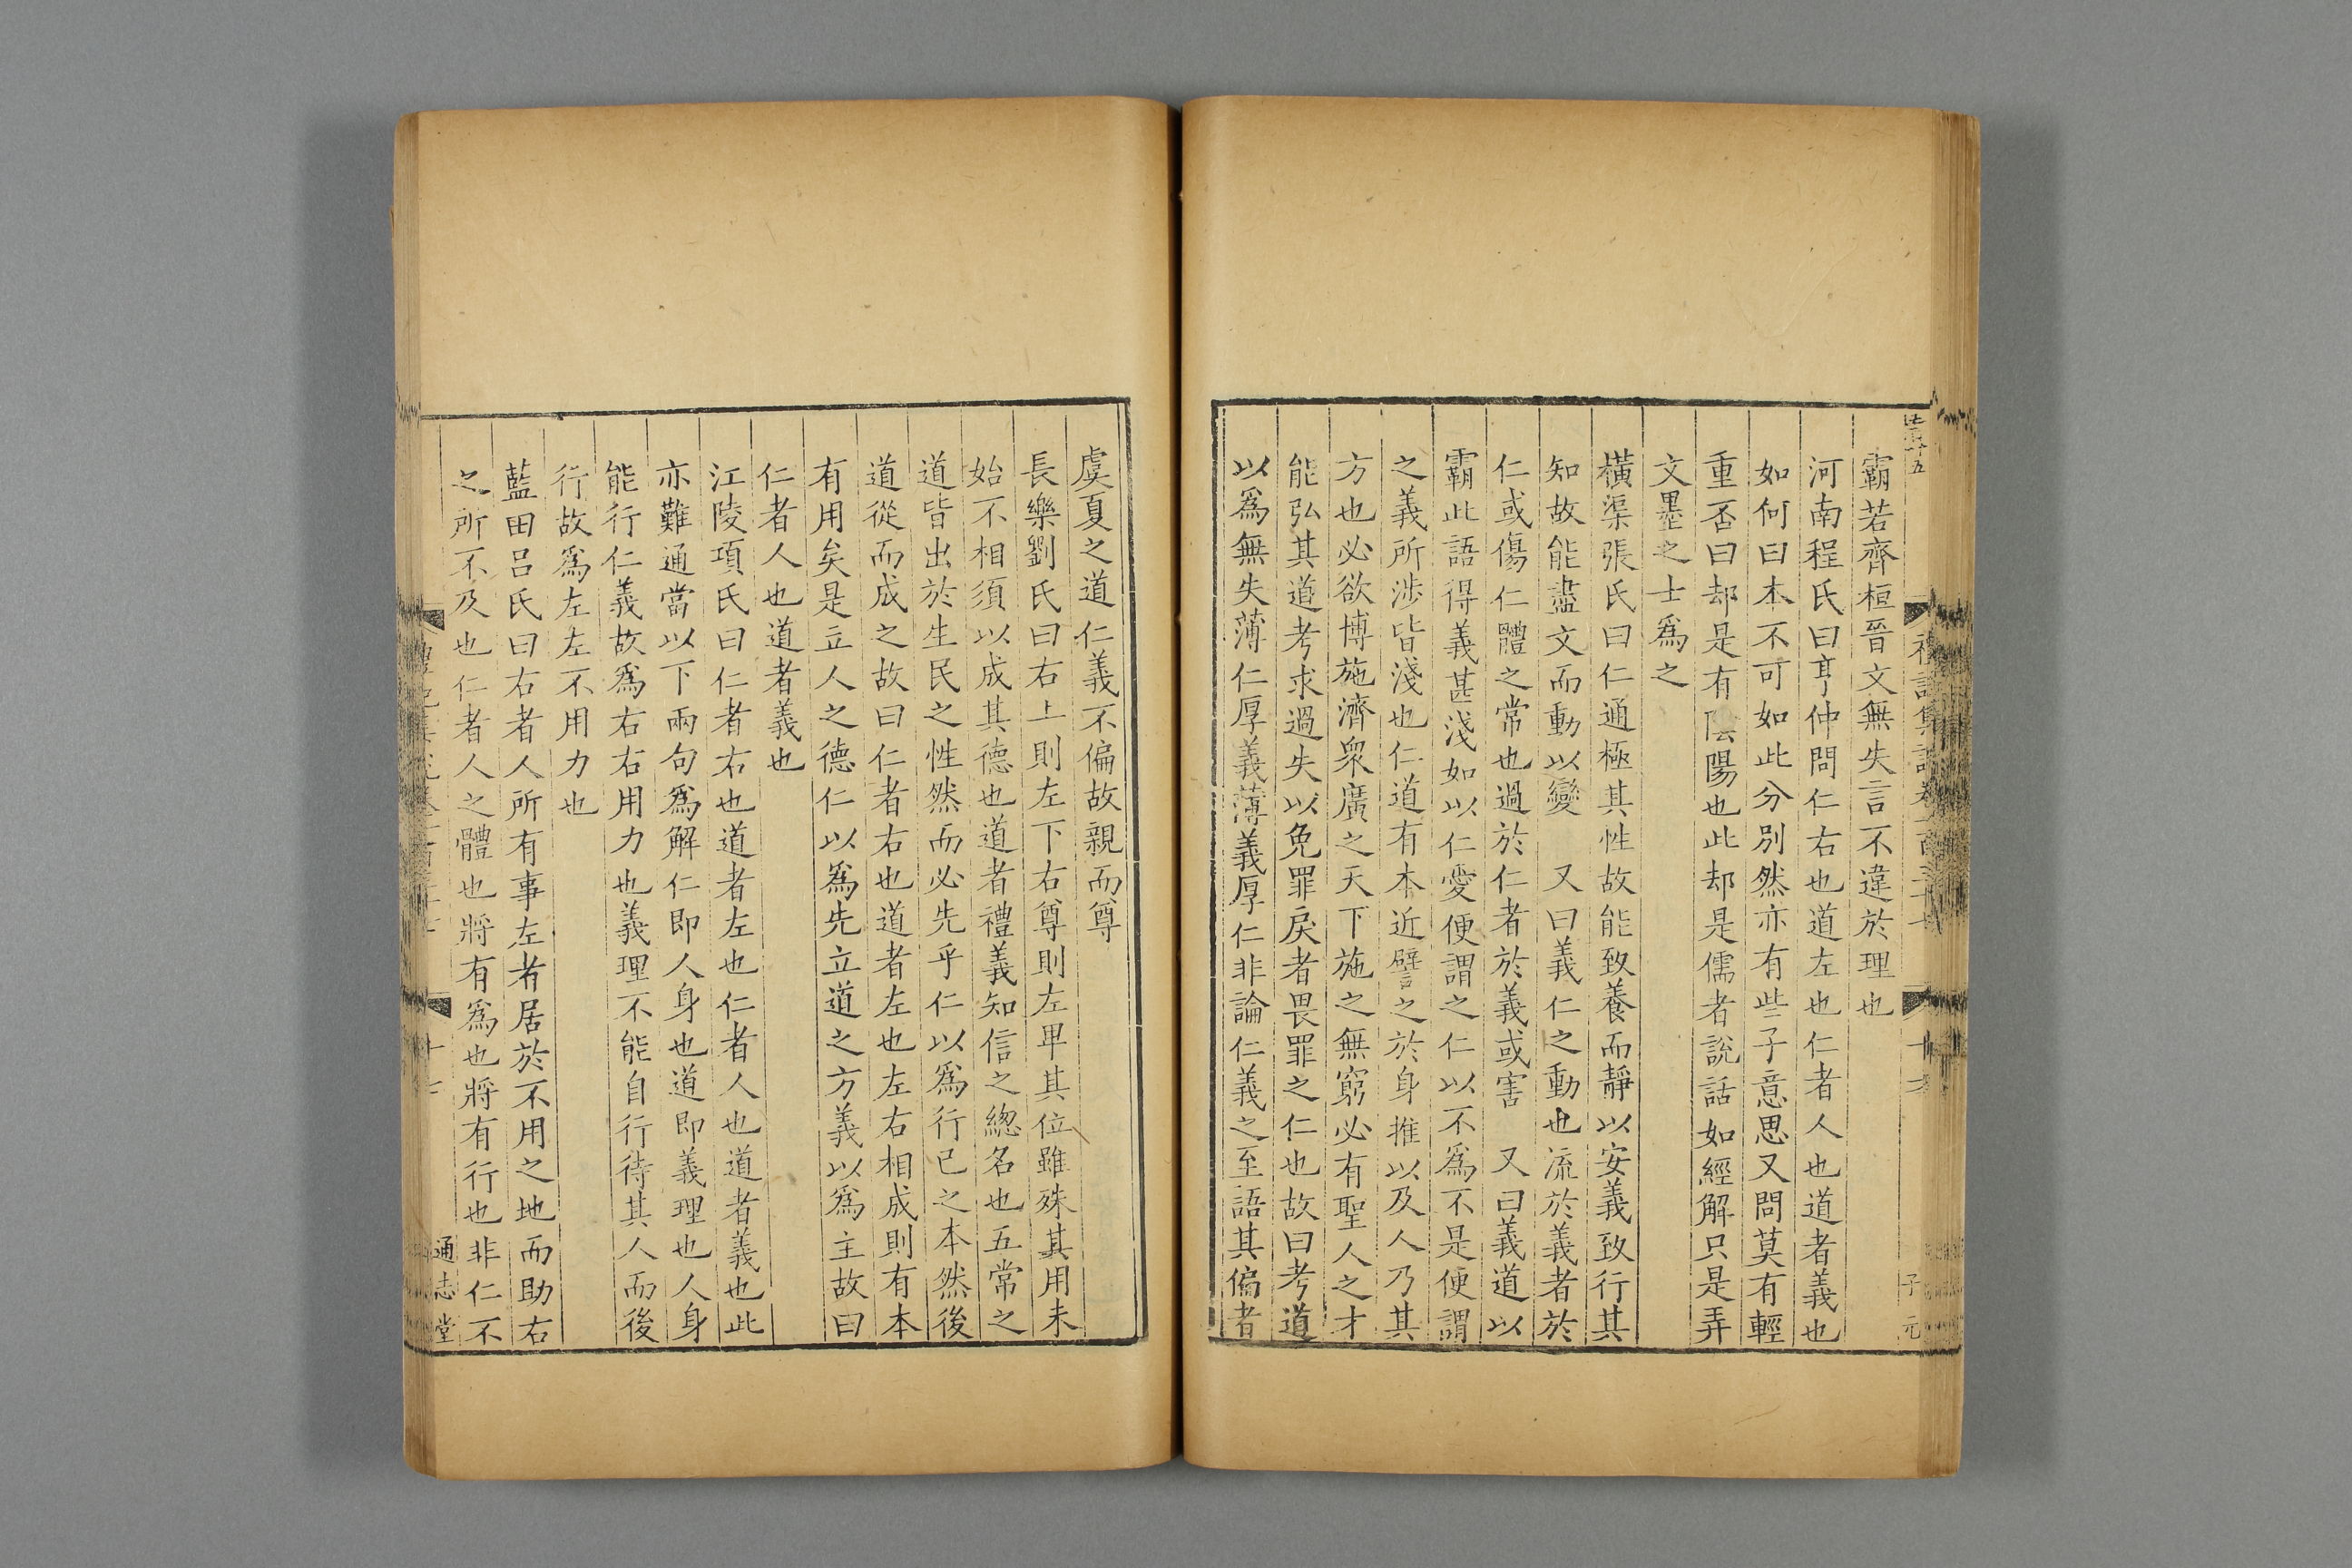 霸若齊桓晉文無失言不違於理也
河南程氏曰亨仲問仁右也道左也仁者人也道者義也
如何曰本不可如此分別然亦有些子意思又問莫有輕
重否曰却是有陰陽也此却是儒者說話如經解只是弄
文墨之士爲之
橫渠張氏曰仁通極其性故能致養而靜以安義致行其
知故能盡文而動以變 又曰義仁之動也流於義者於
仁或傷仁體之常也過於仁者於義或害 又曰義道以
霸此語得義甚淺如以仁愛便謂之仁以不爲不是便謂
之義所涉皆淺也仁道有本近譬之於身推以及人乃其
方也必欲博施濟衆廣之天下施之無窮必有聖人之才
能弘其道考求過失以免罪戾者畏罪之仁也故曰考道
以爲無失薄仁厚義薄義厚仁非論仁義之至語其偏者
子元
虞夏之道仁義不偏故親而尊
長樂劉氏曰右上則左下右尊則左卑其位雖殊其用未
始不相須以成其德也道者禮義知信之總名也五常之
道皆出於生民之性然而必先乎仁以爲行已之本然後
道從而成之故曰仁者右也道者左也左右相成則有本
有用矣是立人之德仁以爲先立道之方義以爲主故曰
仁者人也道者義也
江陵項氏曰仁者右也道者左也仁者人也道者義也此
亦難通當以下兩句爲解仁即人身也道即義理也人身
能行仁義故爲右右用力也義理不能自行待其人而後
行故爲左左不用力也
藍田呂氏曰右者人所有事左者居於不用之地而助右
之所不及也仁者人之體也將有爲也將有行也非仁不
通志堂